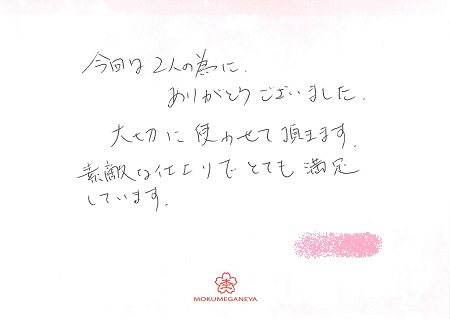 今回は2人の為に.
ありがとうございました.
大切に使わせて頂きます.
素敵な仕上りでとても満足
しています.
MOKUMEGANEYA